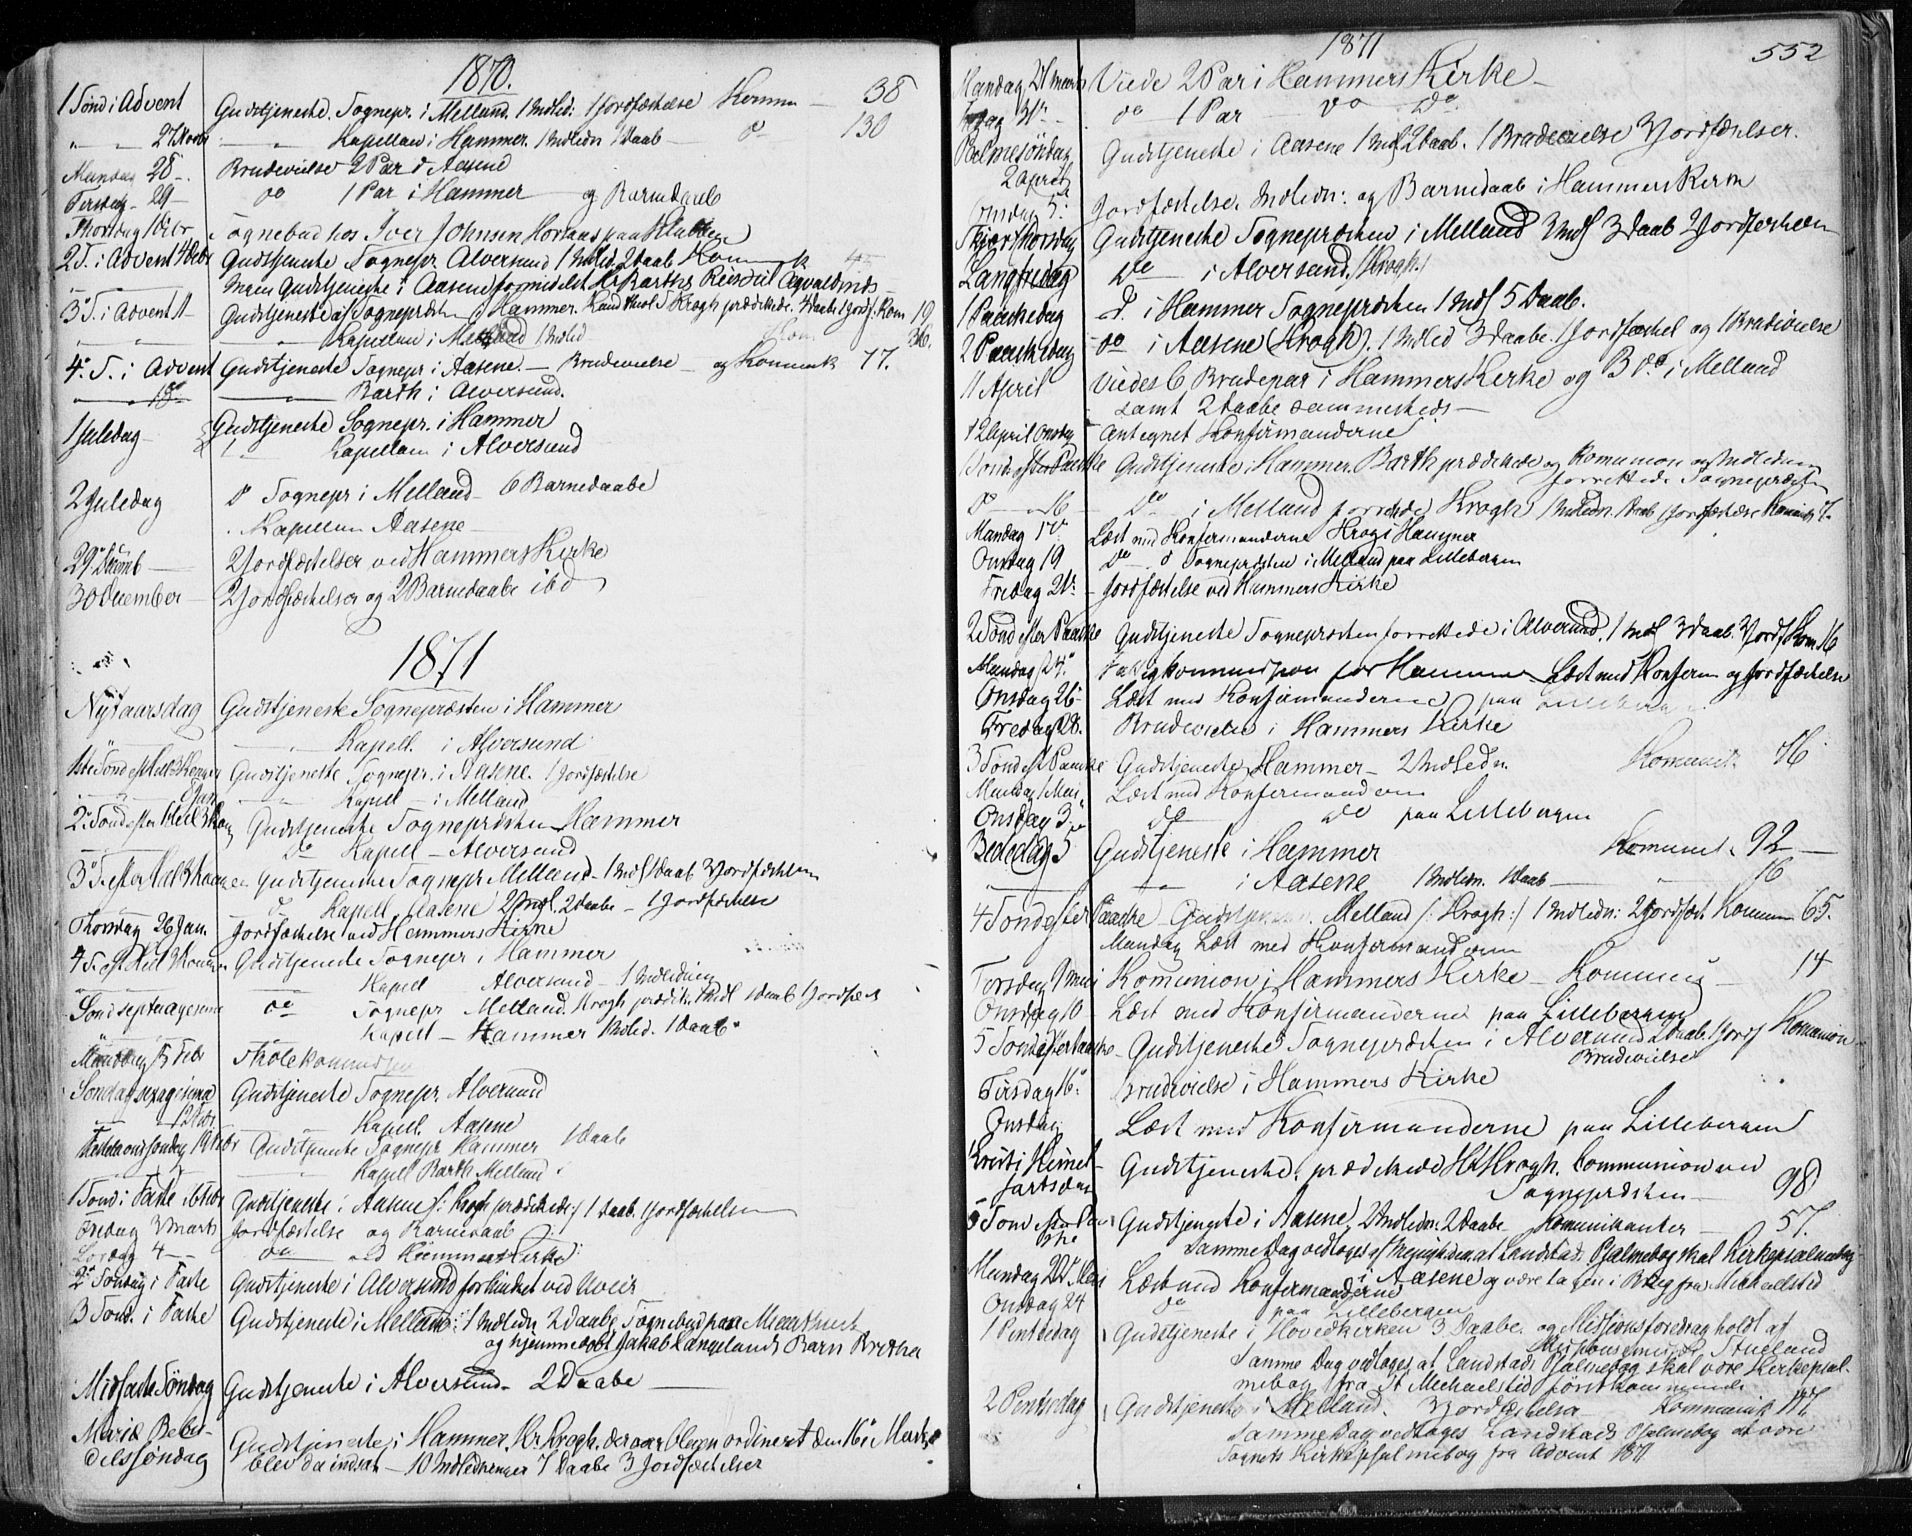 1870.
1 Sønd i Advent Gudstjeneste. Sognepr. i Melland. 1 Indled: 1 Jordfæstelse Komm — 38
" — 27 Novbr — " — Kapellan i Hammer. 1 Indledn 1 Daab — do — 130
Mandag 28 — Brudevielse 2 Par i Aasene
Tirsdag — 29 — do 1 Par i Hammer — og Barnedaab
Thorsdag 1 Debr Sognebud hos Iver Johnsen paa
2 S. i Advent 4 Debr Gudstjeneste Sognepr Alversund 1 Indled. 2 Daab Kommunik
Ingen Gudstjeneste i Aasene formedelst Hr Barths Reise til
3 S. i Advent 11 — Gudstjeneste af Sognepræsten i Hammer. Kand theol Krogh prædikede. 4 Daabe 1 Jordf. Kom 19
Kapellan i Melland 1 Indled 36.
4. S. i Advent Gudstjeneste Sognepr i Aasene. — Brudevielse — og Kommunik 17.
18 — Barth i Alversund.
1 Juledag — Gudstjeneste Sognepr. i Hammer
Kapellan i Alversund
2 Juledag do Sognepr i Melland — 6 Barnedaabe
Kapellan Aasene —
29 Decemb — 2 Jordfæstelser ved Hammers Kirke
30 December — 2 Jordfæstelser og 2 Barnedaabe ibd
1871
Nytaarsdag Gudstjeneste Sognepræsten i Hammer
— " — Kapell. i Alversund
1ste Sønd eft Hell 3 Konger Gudstjeneste Sognepr. i Aasene. 1 Jordfæstelse
8 Jan — " — Kapell i Melland
2 Sønd efter Hell 3 Kong Gudstjeneste Sognepræsten Hammer
do Kapell — Alversund
3 S. efter Hel 3 Konger Gudstjeneste Sognepr Melland — 1 Indl 1 Daab 3 Jordfæstelsen
Kapell Aasene 2 Indl. 2 Daabe — 1 Jordfæstelse
Thorsdag 26 Jan. Jordfæstelse ved Hammers Kirke
4 S. eft Hel 3 Konger Gudstjeneste Sognepr i Hammer
Kapell Alversund — 1 Indledning
Sønd septuagesima do Sognepr Melland. Krogh prædik. 1 Indl 1 Daab 1 Jordfæst
Kapell — Hammer 1 Indled. 1 Daab.
Mandag Febr Skolekommission
Søndag sexagesima Gudstjeneste Sognepr. Alversund
12 Febr Kapell. Aasene
Fastelavnssøndag 19 Febr Gudstjeneste Sognepr Hammer 1 Daab
Kapell Barth Melland
1 Sønd i Faste 26 Febr Gudstjeneste i Aasene /: Krogh prædikede :/ 1 Daab. 1 Jordfæstelse
Fredag 3 Marts Jordfæstelse og Barnedaab
Lørdag 4 — do ved Hammers Kirke
2 Søndag i Faste Gudstjeneste i Alversund forhindret ved Uveir
3 Sønd. i Faste Gudstjeneste i Melland: 1 Indledn 2 Daabe Sognebud paa
og hjemmedøbt Jakob Langelands Barn Britha
Midfaste Søndag Gudstjeneste i Alversund — 2 Daabe —
Mariæ Bebudelssøndag Gudstjeneste i Hammer. Hr. Krogh, der var bleven ordineret den 16 Marts,
blev da indsat — 10 Indledninger 7 Daabe 3 Jordfæstelser
1871 552
Mandag 27 Marts Viede 2 Par i Hammers Kirke —
Fredag 31 — do 1 Par do do
Palmesøndag Gudstjeneste i Aasene 1 Indl 2 Daab. 1 Brudevielse 3 Jordfæstelser.
2 April
Onsdag 5. Jordfæstelse. Indledn: og Barnedaab i Hammers Kirke
Skjærthorsdag Gudstjeneste Sognepræsten i Melland 3 Indl 3 Daab 2 Jordfæstelser
Langfredag do — i Alversund. (Krogh.)
1 Paaskedag d. i Hammer Sognepræsten 1 Indl 5 Daab.
2 Paaskedag do i Aasene (Krogh). 1 Indled 3 Daabe. 1 Jordfæstel og 1 Brudevielse
11 April Viedes 6 Brudepar i Hammers Kirke og B do i Melland
samt 2 Daabe sammesteds —
12 April Onsdag Antegnet Konfirmanderne
1 Sønd efter Paaske Gudstjeneste i Hammer. Barth prædikede og Komunion og Indledn
forrettede Sognepræsten
do — 16 do i Melland forrettede Krogh 1 Indledn. 1 Daab 1 Jordfæstelse Komunik
Mandag 17 Læst med Konfirmanderne Krogh i Hammer
Onsdag 19 do do Sognepræsten i Melland paa Lillebergen
Fredag 21 — Jordfæstelse ved Hammers Kirke
2 Sønd efter Paaske Gudstjeneste Sognepræsten forrettede i Alversund. 1 Indl 3 Daab. 3 Jordf Kom 16
Mandag 24. Fattigkommission for Hammer. Læst med Konfirm og Jordfæstelse
Onsdag 26 — Læst med Konfirmanderne paa Lillebergen
Fredag 28. Brudevielse i Hammers Kirke
3 Sønd eft Paaske Gudstjeneste Hammer — 2 Indledn. Komunik 76
Mandag 1 Mai Læst med Konfirmanderne
Onsdag 3 do do paa Lillebergen
Bededag 5 Gudstjeneste i Hammer Komunik. 92 —
— " — i Aasene 1 Indledn. 1 Daab — 16
4 Sønd efter Paaske Gudstjeneste. Melland /: Krogh :/ 1 Indledn: 2 Jordfæst Kommun 65.
Mandag Læst med Konfirmanderne
Tirsdag 9 Mai Komunion i Hammers Kirke — Kommunik — 14
Onsdag 10 Læst med Konfirmanderne paa Lillebergen
5 Sønd efter Paaske — Gudstjeneste Sognepræsten i Alversund 2 Daab. 1 Jordf Komunion
Brudevielse
Tirsdag 16. Brudevielse i Hammers Kirke
Onsdag Læst med Konfirmanderne paa Lillebergen
Kristi Himmelfartsdag Gudstjeneste. prædikede Hr Krogh. Communion ved
Sognepræsten — 98
6 Sønd efter Paaske Gudstjeneste i Aasene, 2 Indledn: 2 Daabe Komunikanter — 57.
Samme Dag vedtoges af Menigheden at Landstads Psalmebog skal Kirkepsalmebog
i Aasene og være tagen i Brug fra Michaelstid
Mandag 22 Mai Læst med Konfirmanderne
Onsdag 24 do paa Lillebergen
1 Pintsedag Gudstjeneste i Hovedkirken 3 Daabe. og Missionsforedrag holdt af
Stueland
Samme Dag vedtoges, at Landstads Psalmebog skal være Kirkepsalmebog
fra St Michaelstid førstkommende
2 Pintsedag Gudstjeneste i Melland. 3 Jordfæstelser Kommunik
Samme Dag vedtoges Landstads Psalmebog at være
Sognets Kirkepsalmebog fra Advent 1871